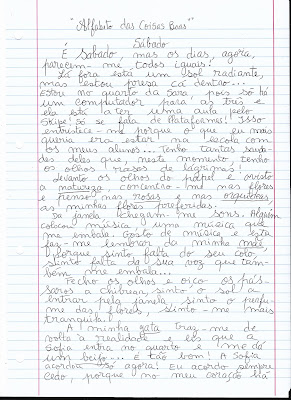 "Alfabeto das Coisas Boas"
Sábado
É Sábado, mas os dias, agora,
parecem-me todos iguais!
Lá fora está um sol radiante,
mas estou presa cá dentro...
Estou no quarto da Sara pois só há
um computador para as três e
ela está a ter uma aula pelo
Skipe! Só se fala de Plataformas! Isso
entristece-me porque o que eu mais
queria era estar na escola com
os meus alunos... Tenho tantas sauda-
des deles que, neste momento tenho
os olhos rasos de lágrimas!
Levanto os olhos do papel e avisto
a natureza, concentro-me nas flores
e penso nas rosas e nas orquídeas
as minhas flores preferidas.
Da janela chegam-me sons. Alguém
colocou música, uma música que
me embala. Gosto de música e esta
faz-me lembrar da minha mãe
porque sinto falta do seu colo,
sinto falta da sua voz que tam-
bém me embala...
Fecho os olhos e oiço os pás-
saros a chilrear, sinto o sol a
entrar pela janela, sinto o perfu-
me das flores, sinto-me mais
tranquila!
A minha gata traz-me de
volta à realidade e eis que a
Sofia entra no quarto e me dá
um beijo... E tão bom! A Sofia
acordou só agora! Eu acordo sempre
cedo, porque no meu coração há